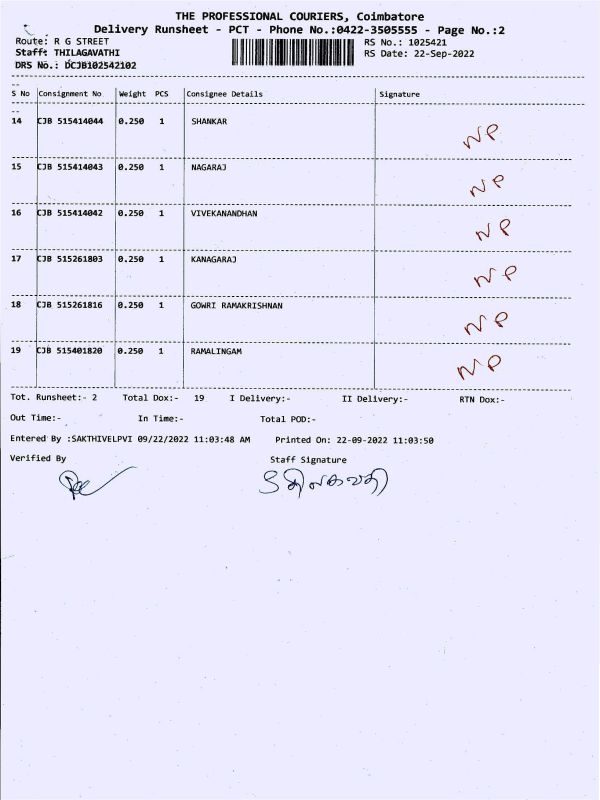 THE PROFESSIONAL COURIERS, Coimbatore
Delivery Runsheet - PCT - Phone No.:0422-3505555 - Page No.:2
Route: R G STREET RS No.: 1025421
Staff: THILAGAVATHI RS Date: 22-Sep-2022
DRS No.: DCJB102542102
S No Consignment No Weight PCS Consignee Details Signature
14 CJB 515414044 0.250 1 SHANKAR NP
15 CJB 515414043 0.250 1 NAGARAJ NP
16 CJB 515414042 0.250 1 VIVEKANANDHAN NP
17 CJB 515261803 0.250 1 KANAGARAJ NP
18 CJB 515261816 0.250 1 GOWRI RAMAKRISHNAN NP
19 CJB 515401820 0.250 1 RAMALINGAM NP
Tot. Runsheet:- 2 Total Dox:- 19 I Delivery:- II Delivery:- RTN Dox:-
Out Time:- In Time:- Total POD:-
Entered By :SAKTHIVELPVI 09/22/2022 11:03:48 AM Printed On: 22-09-2022 11:03:50
Verified By Staff Signature